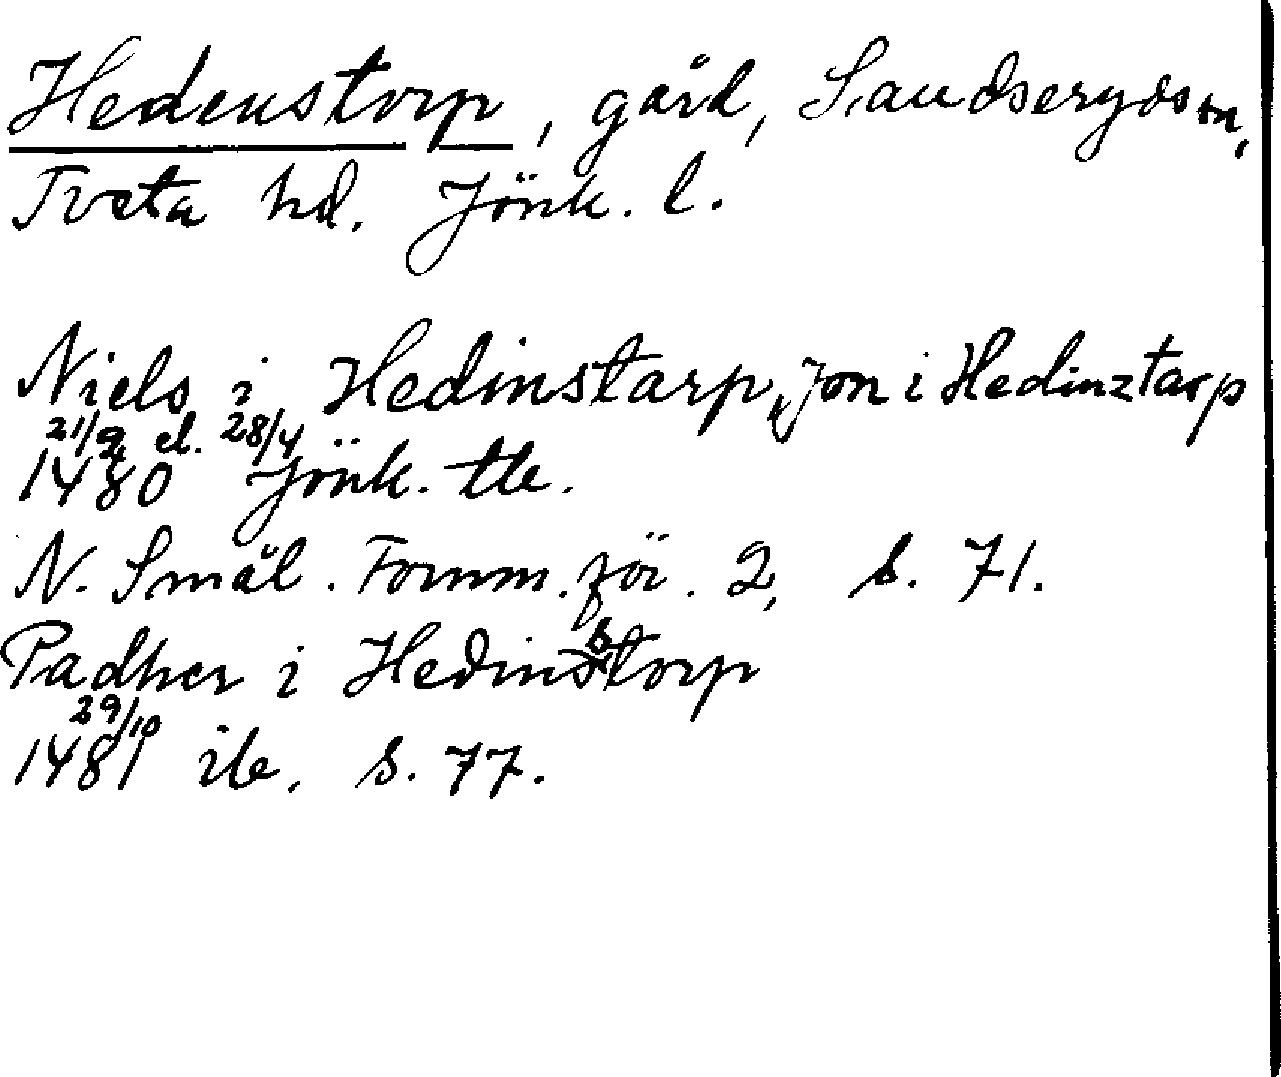 Hedenstorp, gård, Sandseryds sn,
Tveta hd. Jönk. l.
Niels i Hedinstarp, Jon i Hedinztarp
21/9 el. 28/4
1480 Jönk. tb.
N. Smål. Fornm. för. 2, s. 71.
Padher i Hedinstorp
29/10
1481 ib. s. 77.